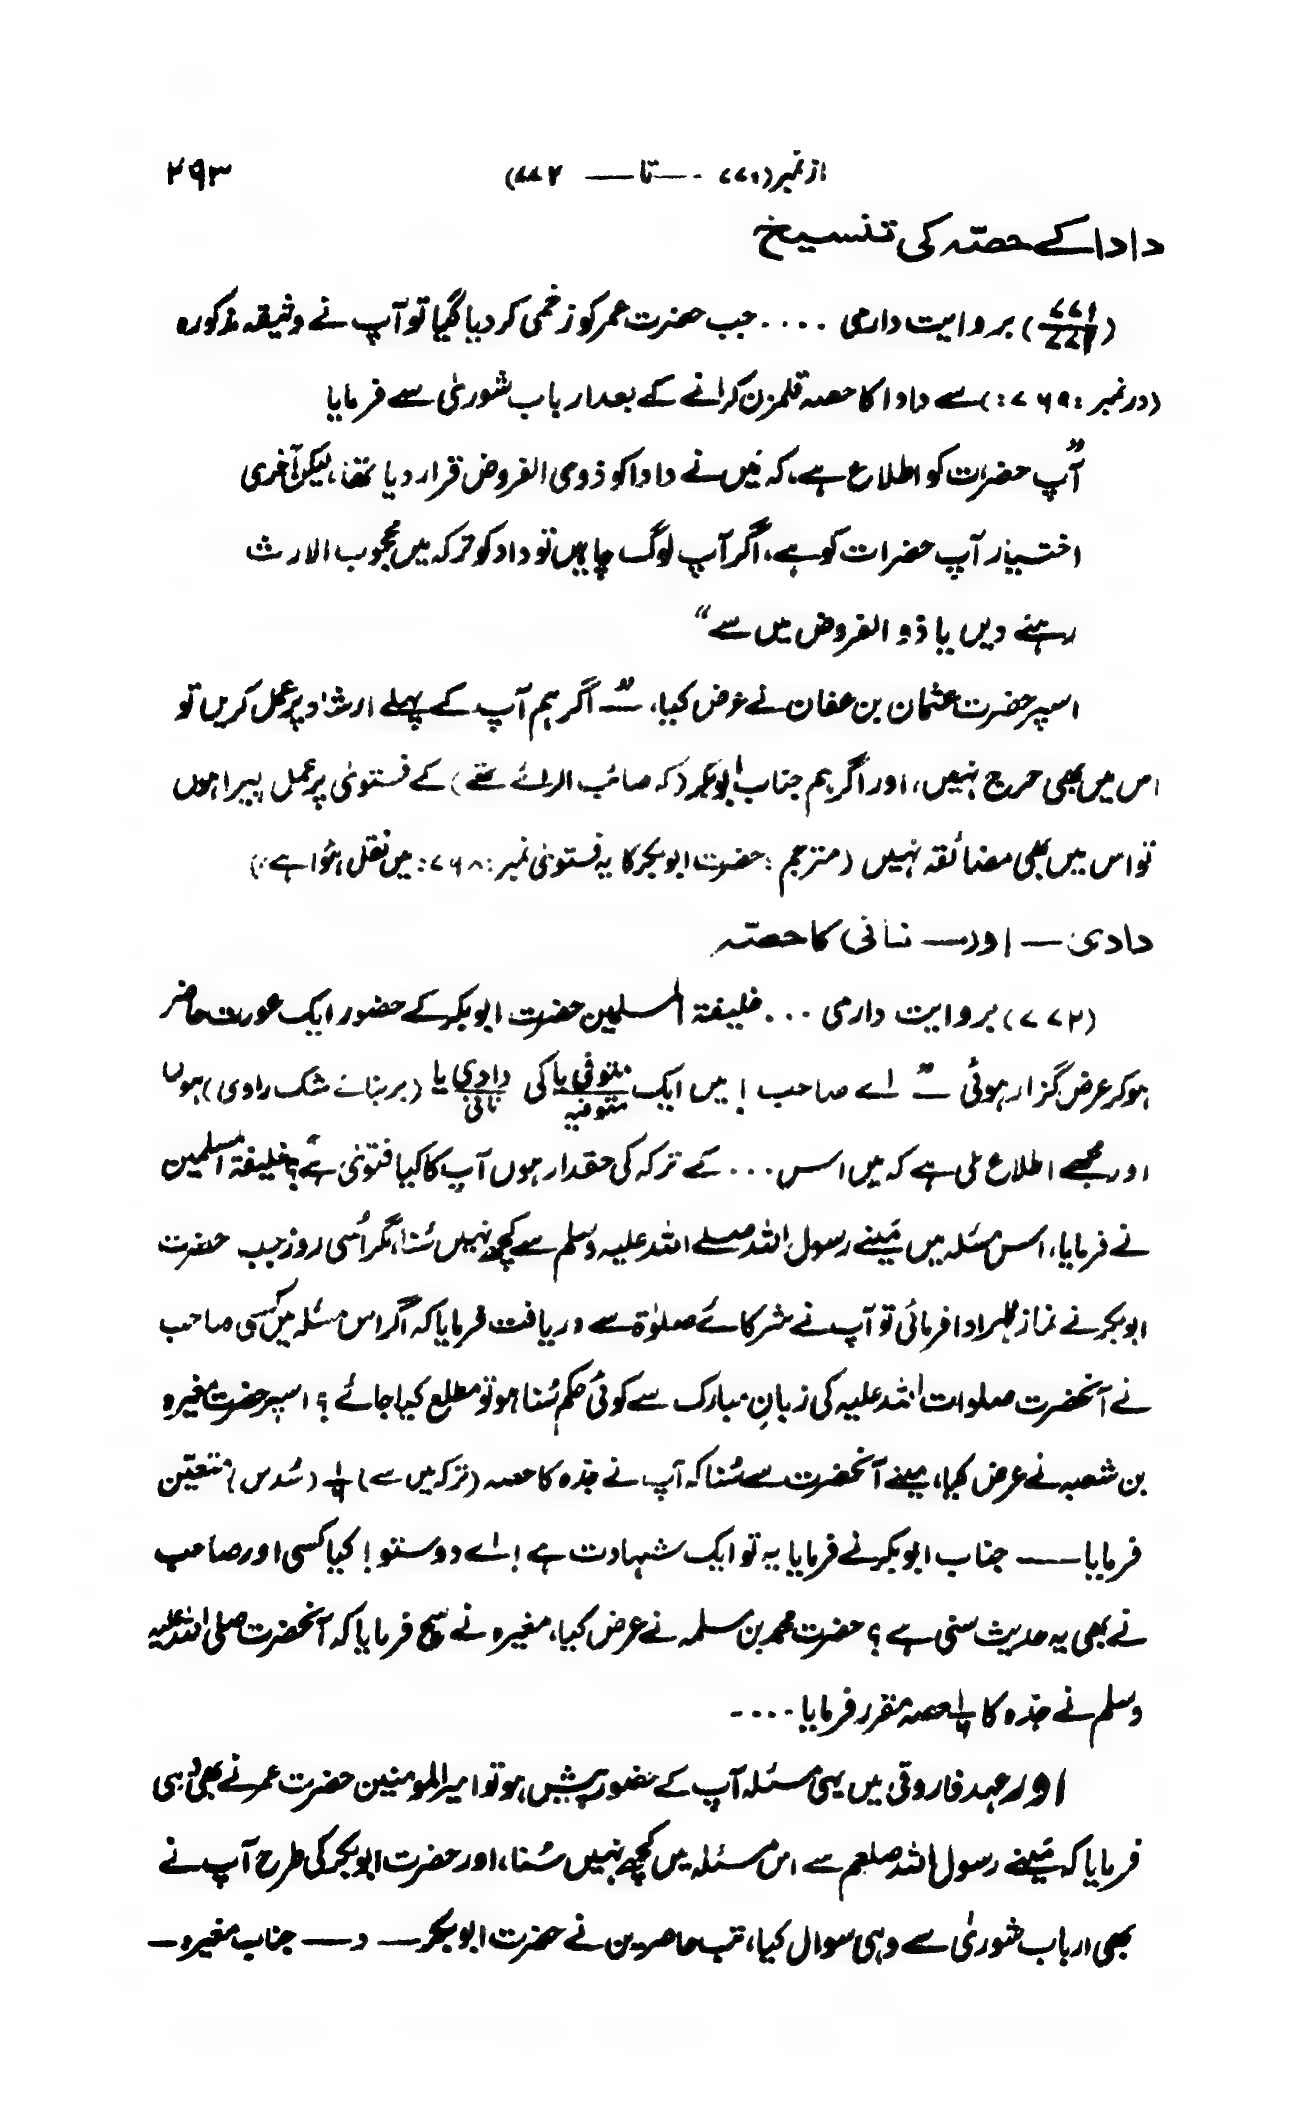 از نمبر (۷۷۱ — تا — ۷۷۲) ۲۹۳
دادا کے حصّہ کی تنسیخ
(۷۷۱) بروایت دارمی .... جب حضرت عمر کو زخمی کر دیا گیا تو آپ نے وثیقہ مذکورہ
(در نمبر :۷۶۹:) سے دادا کا حصہ قلمزن کرانے کے بعد ارباب شوریٰ سے فرمایا
”آپ حضرات کو اطلاع ہے، کہ مَیں نے دادا کو ذوی الفروض قرار دیا تھا، لیکن آخری
اختیار آپ حضرات کو ہے، اگر آپ لوگ چاہیں تو داد کو ترکہ میں محجوب الارث
رہنے دیں یا ذو الفروض میں سے“
اسپر حضرت عثمان بن عفان نے عرض کیا، — ”اگر ہم آپ کے پہلے ارشاد پر عمل کریں تو
اس میں بھی حرج نہیں، اور اگر ہم جناب ابوبکر (کہ صائب الرائے تھے) کے فتویٰ پر عمل پیرا ہوں
تو اس میں بھی مضائقہ نہیں (مترجم : حضرت ابوبکر کا یہ فتویٰ نمبر :۷۶۸: میں نقل ہوا ہے)
دادی — اور — نانی کا حصّہ
(۷۷۲) بروایت دارمی ... خلیفۃ المسلمین حضرت ابوبکر کے حضور ایک عورت حاضر
ہو کر عرض گزار ہوئی — ”اے صاحب ! میں ایک متوفی یا متوفیہ کی دادی یا نانی (بربنائے شک راوی) ہوں
اور مجھے اطلاع ملی ہے کہ میں اس ... کے ترکہ کی حقدار ہوں آپ کا کیا فتویٰ ہے؟“ خلیفۃ المسلمین
نے فرمایا، اس مسئلہ میں مَینے رسول اللہ صلے اللہ علیہ وسلم سے کچھ نہیں سُنا، مگر اُسی روز جب حضرت
ابوبکر نے نماز ظہر ادا فرمائی تو آپ نے شرکائے صلوٰۃ سے دریافت فرمایا کہ اگر اس مسئلہ میں کسی صاحب
نے آنحضرت صلوات اللہ علیہ کی زبانِ مبارک سے کوئی حکم سُنا ہو تو مطلع کیا جائے ؟ اسپر حضرت مغیرہ
بن شعبہ نے عرض کیا، مینے آنحضرت سے سُنا کہ آپ نے جدّہ کا حصہ (ترکہ میں سے) ۱/۶ (سُدس) متعیّن
فرمایا — جناب ابوبکر نے فرمایا یہ تو ایک شہادت ہے ! اے دوستو ! کیا کسی اور صاحب
نے بھی یہ حدیث سنی ہے ؟ حضرت محمد بن سلمہ نے عرض کیا، مغیرہ نے سچ فرمایا کہ آنحضرت صلی اللہ علیہ
وسلم نے جدّہ کا ۱/۶ حصہ مقرر فرمایا ....
اور عہد فاروقی میں یہی مسئلہ آپ کے حضور پیش ہو تو امیر المومنین حضرت عمر نے بھی وہی
فرمایا کہ مَینے رسول اللہ صلعم سے اس مسئلہ میں کچھ نہیں سُنا، اور حضرت ابوبکر کی طرح آپ نے
بھی ارباب شوریٰ سے وہی سوال کیا، تب حاضرین نے حضرت ابوبکر — و — جناب مغیرہ —